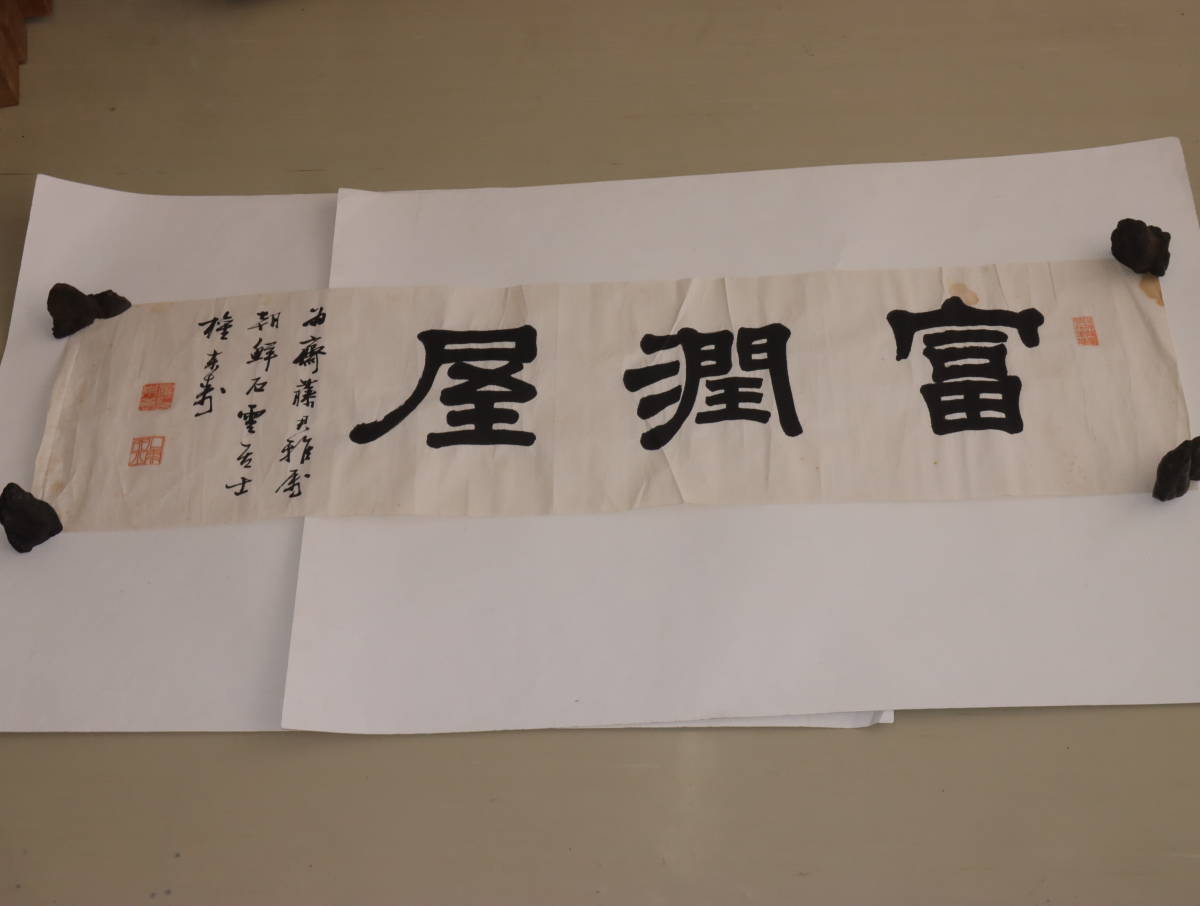 富潤屋
為齋藤君雅屬
朝鮮石雲居士
權東壽